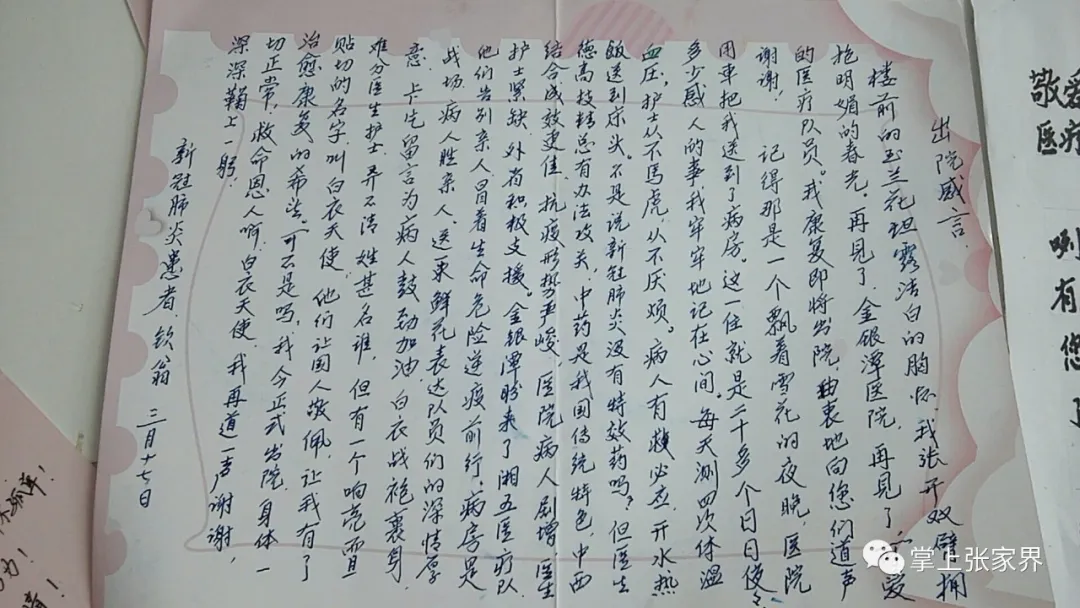 出院感言
楼前的玉兰花坦露洁白的胸怀,我张开双臂拥
抱明媚的春光。再见了,金银潭医院,再见了,亲爱
的医疗队员。我康复即将出院,由衷地向您们道声
谢谢!
记得那是一个飘着雪花的夜晚,医院
用车把我送到了病房。这一住就是二十多个日日夜夜,
多少感人的事我牢牢地记在心间。每天测四次体温
血压,护士从不马虎,从不厌烦。病人有求必应,开水热
饭送到床头。不是说新冠肺炎没有特效药吗?但医生
德高技精总有办法攻关,中药是我国传统特色,中西
结合成效更佳,抗疫形势严峻,医院病人剧增,医生
护士紧缺,外省积极支援。金银潭盼来了湘五医疗队
他们告别亲人,冒着生命危险逆疫前行。病房是
战场,病人胜亲人。送一束鲜花表达队员们的深情厚
意,卡片留言为病人鼓劲加油,白衣战袍裹身
难分医生护士,弄不清姓甚名谁,但有一个响亮而
贴切的名字叫白衣天使,他们让国人敬佩,让我有了
治愈康复的希望。可不是吗,我今正式出院,身体一
切正常,救命恩人啊,白衣天使,我再道一声谢谢,
深深鞠上一躬!
新冠肺炎患者 钦翁 三月十七日
敬爱
医疗
有
您
掌上张家界